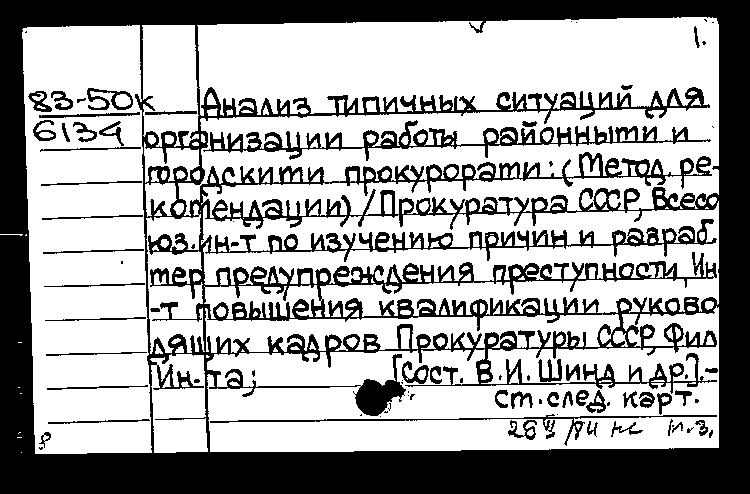 1.
83-50к Анализ типичных ситуаций для
6134 организации работы районными и
городскими прокурорами: (Метод. ре-
комендации) / Прокуратура СССР, Всесо
юз. ин-т по изучению причин и разраб.
мер предупреждения преступности, Ин-
-т повышения квалификации руково
дящих кадров Прокуратуры СССР, Фил
Ин-та; [Сост. В.И. Шинд и др.].-
См. след. карт.